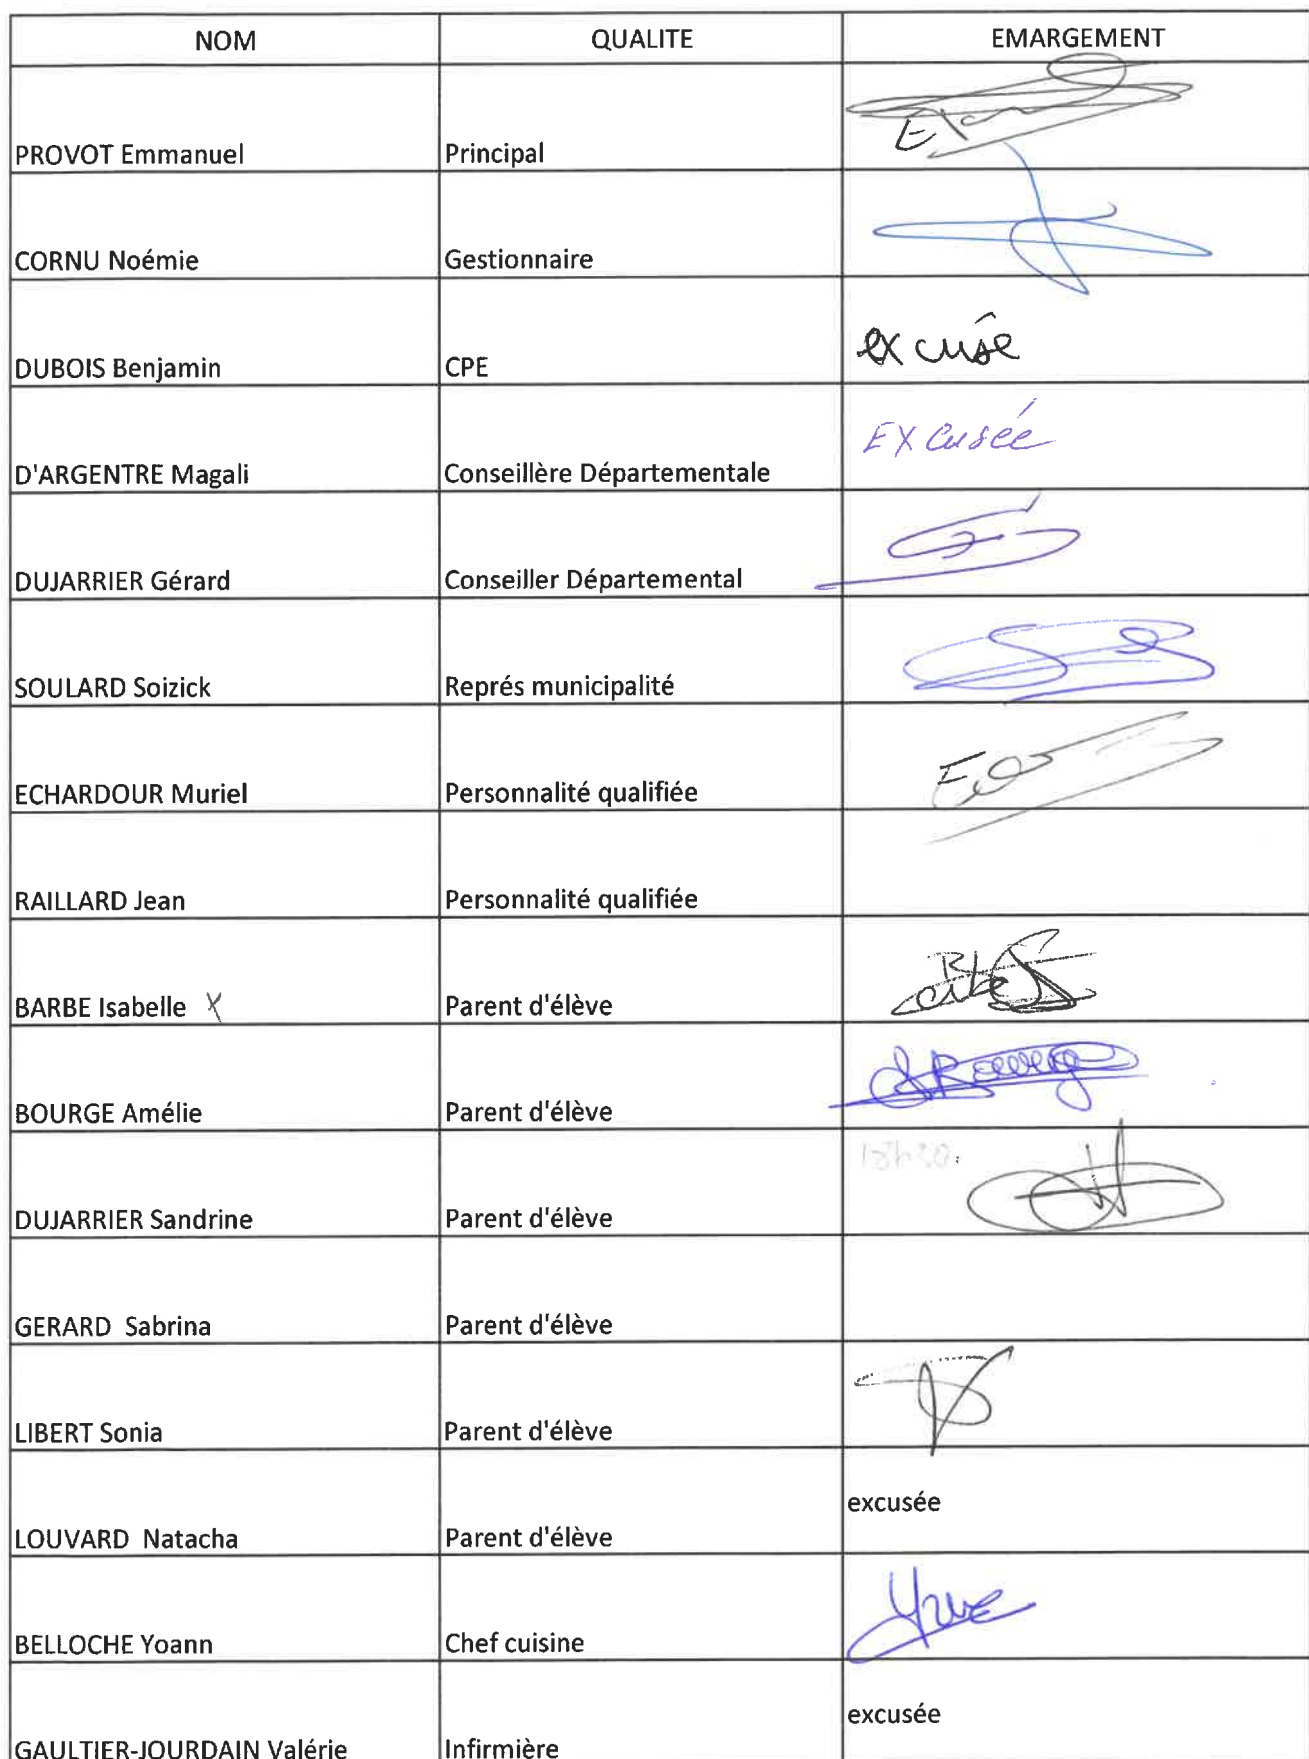 NOM QUALITE EMARGEMENT
PROVOT Emmanuel Principal
CORNU Noémie Gestionnaire
DUBOIS Benjamin CPE excusé
D'ARGENTRE Magali Conseillère Départementale Excusée
DUJARRIER Gérard Conseiller Départemental
SOULARD Soizick Représ municipalité
ECHARDOUR Muriel Personnalité qualifiée
RAILLARD Jean Personnalité qualifiée
BARBE Isabelle X Parent d'élève
BOURGE Amélie Parent d'élève
DUJARRIER Sandrine Parent d'élève
GERARD Sabrina Parent d'élève
LIBERT Sonia Parent d'élève
LOUVARD Natacha Parent d'élève excusée
BELLOCHE Yoann Chef cuisine
GAULTIER-JOURDAIN Valérie Infirmière excusée